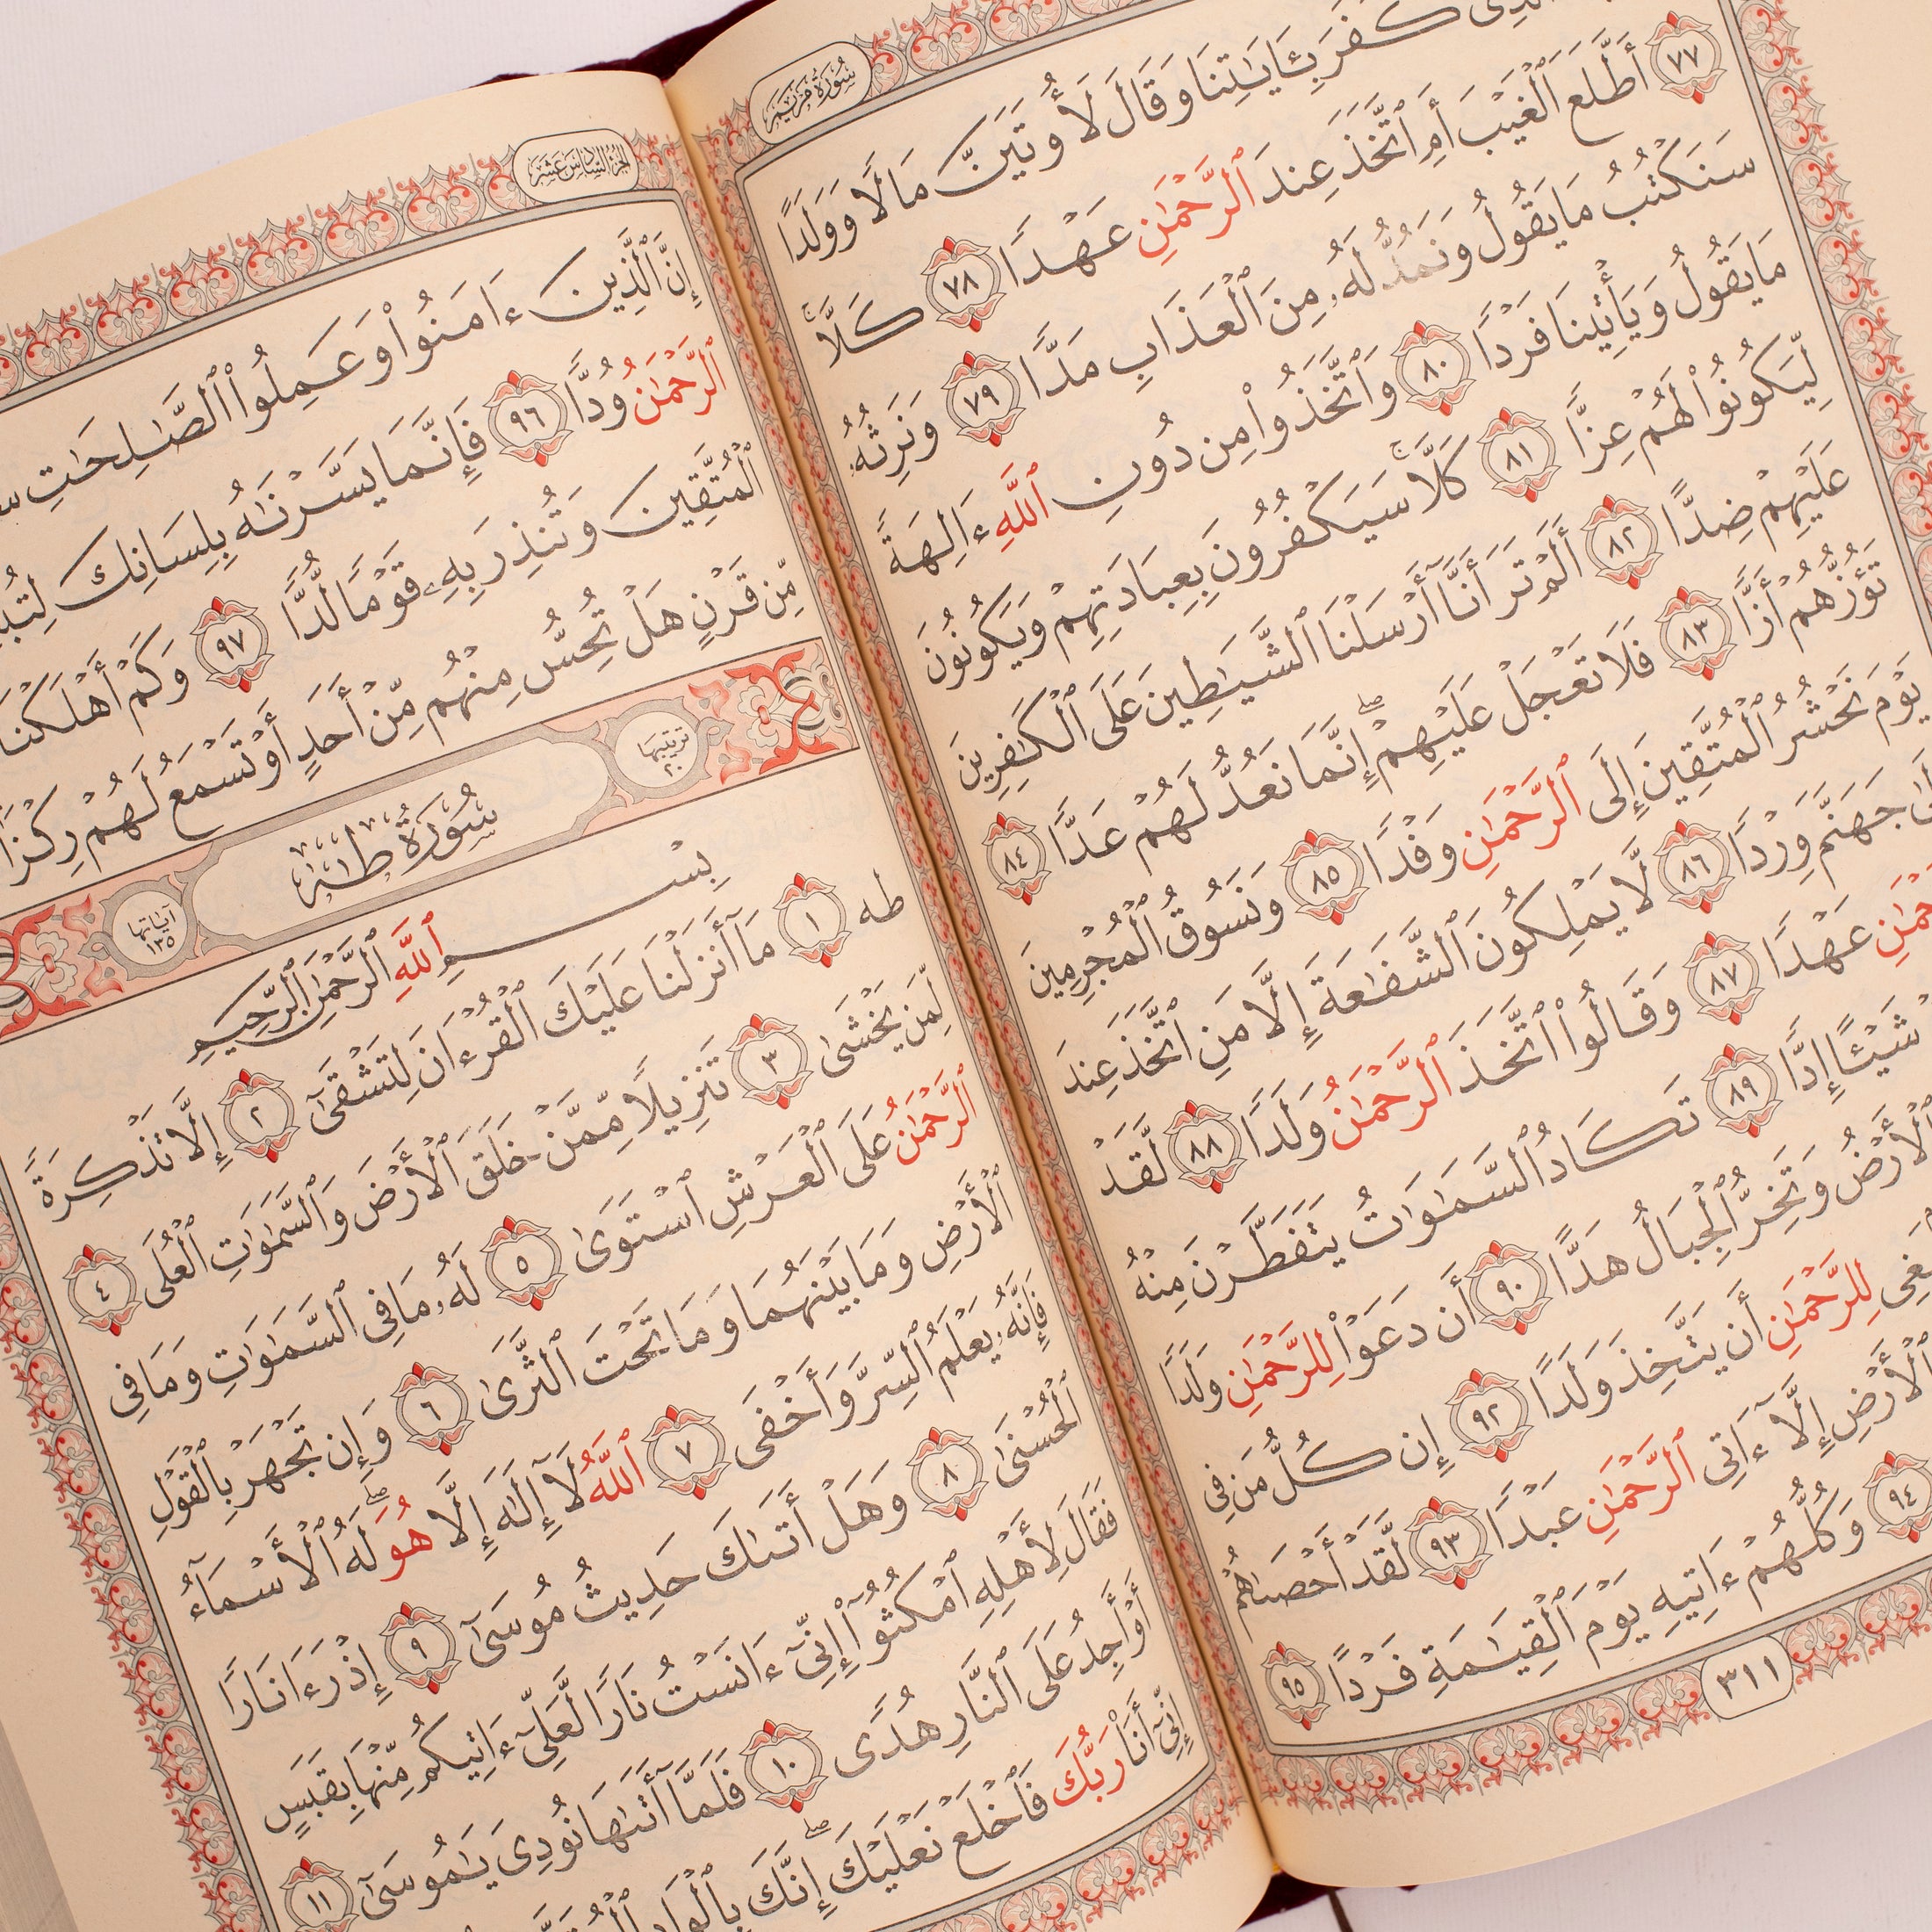 سُورَةُ مَرْيَمَ
كَفَرَ بِـَٔايَٰتِنَا وَقَالَ لَأُوتَيَنَّ مَالًا وَوَلَدًا
٧٧ أَطَّلَعَ ٱلْغَيْبَ أَمِ ٱتَّخَذَ عِندَ ٱلرَّحْمَٰنِ عَهْدًا ٧٨ كَلَّا
سَنَكْتُبُ مَا يَقُولُ وَنَمُدُّ لَهُۥ مِنَ ٱلْعَذَابِ مَدًّا ٧٩ وَنَرِثُهُۥ
مَا يَقُولُ وَيَأْتِينَا فَرْدًا ٨٠ وَٱتَّخَذُوا۟ مِن دُونِ ٱللَّهِ ءَالِهَةً
لِّيَكُونُوا۟ لَهُمْ عِزًّا ٨١ كَلَّا سَيَكْفُرُونَ بِعِبَادَتِهِمْ وَيَكُونُونَ
عَلَيْهِمْ ضِدًّا ٨٢ أَلَمْ تَرَ أَنَّآ أَرْسَلْنَا ٱلشَّيَٰطِينَ عَلَى ٱلْكَٰفِرِينَ
تَؤُزُّهُمْ أَزًّا ٨٣ فَلَا تَعْجَلْ عَلَيْهِمْ إِنَّمَا نَعُدُّ لَهُمْ عَدًّا ٨٤
يَوْمَ نَحْشُرُ ٱلْمُتَّقِينَ إِلَى ٱلرَّحْمَٰنِ وَفْدًا ٨٥ وَنَسُوقُ ٱلْمُجْرِمِينَ
جَهَنَّمَ وِرْدًا ٨٦ لَّا يَمْلِكُونَ ٱلشَّفَٰعَةَ إِلَّا مَنِ ٱتَّخَذَ عِندَ
عَهْدًا ٨٧ وَقَالُوا۟ ٱتَّخَذَ ٱلرَّحْمَٰنُ وَلَدًا ٨٨ لَّقَدْ
شَيْـًٔا إِدًّا ٨٩ تَكَادُ ٱلسَّمَٰوَٰتُ يَتَفَطَّرْنَ مِنْهُ
ٱلْأَرْضُ وَتَخِرُّ ٱلْجِبَالُ هَدًّا ٩٠ أَن دَعَوْا۟ لِلرَّحْمَٰنِ وَلَدًا
لِلرَّحْمَٰنِ أَن يَتَّخِذَ وَلَدًا ٩٢ إِن كُلُّ مَن فِى
ٱلْأَرْضِ إِلَّآ ءَاتِى ٱلرَّحْمَٰنِ عَبْدًا ٩٣ لَّقَدْ أَحْصَىٰهُمْ
٩٤ وَكُلُّهُمْ ءَاتِيهِ يَوْمَ ٱلْقِيَٰمَةِ فَرْدًا ٩٥
٣١١
الجزء السادس عشر
إِنَّ ٱلَّذِينَ ءَامَنُوا۟ وَعَمِلُوا۟ ٱلصَّٰلِحَٰتِ
ٱلرَّحْمَٰنُ وُدًّا ٩٦ فَإِنَّمَا يَسَّرْنَٰهُ بِلِسَانِكَ
ٱلْمُتَّقِينَ وَتُنذِرَ بِهِۦ قَوْمًا لُّدًّا ٩٧ وَكَمْ أَهْلَكْنَا
مِّن قَرْنٍ هَلْ تُحِسُّ مِنْهُم مِّنْ أَحَدٍ أَوْ تَسْمَعُ لَهُمْ رِكْزًا
ترتيبها ٢٠ سُورَةُ طه آياتها ١٣٥
بِسْمِ ٱللَّهِ ٱلرَّحْمَٰنِ ٱلرَّحِيمِ
طه ١ مَآ أَنزَلْنَا عَلَيْكَ ٱلْقُرْءَانَ لِتَشْقَىٰٓ ٢ إِلَّا تَذْكِرَةً
لِّمَن يَخْشَىٰ ٣ تَنزِيلًا مِّمَّنْ خَلَقَ ٱلْأَرْضَ وَٱلسَّمَٰوَٰتِ ٱلْعُلَى ٤
ٱلرَّحْمَٰنُ عَلَى ٱلْعَرْشِ ٱسْتَوَىٰ ٥ لَهُۥ مَا فِى ٱلسَّمَٰوَٰتِ وَمَا فِى
ٱلْأَرْضِ وَمَا بَيْنَهُمَا وَمَا تَحْتَ ٱلثَّرَىٰ ٦ وَإِن تَجْهَرْ بِٱلْقَوْلِ
فَإِنَّهُۥ يَعْلَمُ ٱلسِّرَّ وَأَخْفَى ٧ ٱللَّهُ لَآ إِلَٰهَ إِلَّا هُوَ لَهُ ٱلْأَسْمَآءُ
ٱلْحُسْنَىٰ ٨ وَهَلْ أَتَىٰكَ حَدِيثُ مُوسَىٰٓ ٩ إِذْ رَءَا نَارًا
فَقَالَ لِأَهْلِهِ ٱمْكُثُوٓا۟ إِنِّىٓ ءَانَسْتُ نَارًا لَّعَلِّىٓ ءَاتِيكُم مِّنْهَا بِقَبَسٍ
أَوْ أَجِدُ عَلَى ٱلنَّارِ هُدًى ١٠ فَلَمَّآ أَتَىٰهَا نُودِىَ يَٰمُوسَىٰٓ ١١
إِنِّىٓ أَنَا۠ رَبُّكَ فَٱخْلَعْ نَعْلَيْكَ إِنَّكَ بِٱلْوَادِ